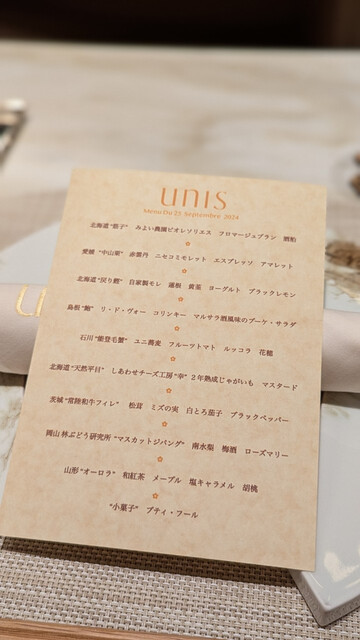 unis
Menu Du 21 Septembre 2024
北海道 “茄子” みよい農園ピオレソリエス フロマージュブラン 酒粕
愛媛 “中山栗” 赤雲丹 ニセコミモレット エスプレッソ アマレット
北海道 “戻り鰹” 自家製モレ 蓮根 黄韮 ヨーグルト ブラックレモン
島根 “鮑” リ・ド・ヴォー コリンキー マルサラ酒風味のブーケ・サラダ
石川 “能登毛蟹” ユニ蕎麦 フルーツトマト ルッコラ 花穂
北海道 “天然平目” しあわせチーズ工房 “幸” 2年熟成じゃがいも マスタード
茨城 “常陸和牛フィレ” 松茸 ミズの実 白とろ茄子 ブラックペッパー
岡山 林ぶどう研究所 “マスカットジパング” 南水梨 梅酒 ローズマリー
山形 “オーロラ” 和紅茶 メープル 塩キャラメル 胡桃
“小菓子” プティ・フール